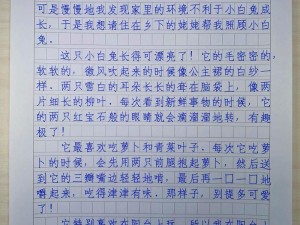 可是慢慢地我发现家里的环境不利于小白兔成
长，于是我想请住在乡下的姥姥帮我照顾小白
兔。
这只小白兔长得可漂亮了！它的毛密密的，
软软的，微风吹起的时候像公主裙的白纱一
样。两只雪白的耳朵长长的耷在脑袋上，像两
片细长的柳叶，每次看到新鲜事物的时候，它
的两只红宝石般的眼睛就会滴溜溜地转，有趣
极了！
它最喜欢吃萝卜和青菜叶子。每次它吃萝
卜的时候，会先用两只前腿抱起萝卜，然后送
到它的三瓣嘴边轻轻地啃，最后再一口一口地
嚼起来，吃得津津有味，那样子，别提多可爱
了！